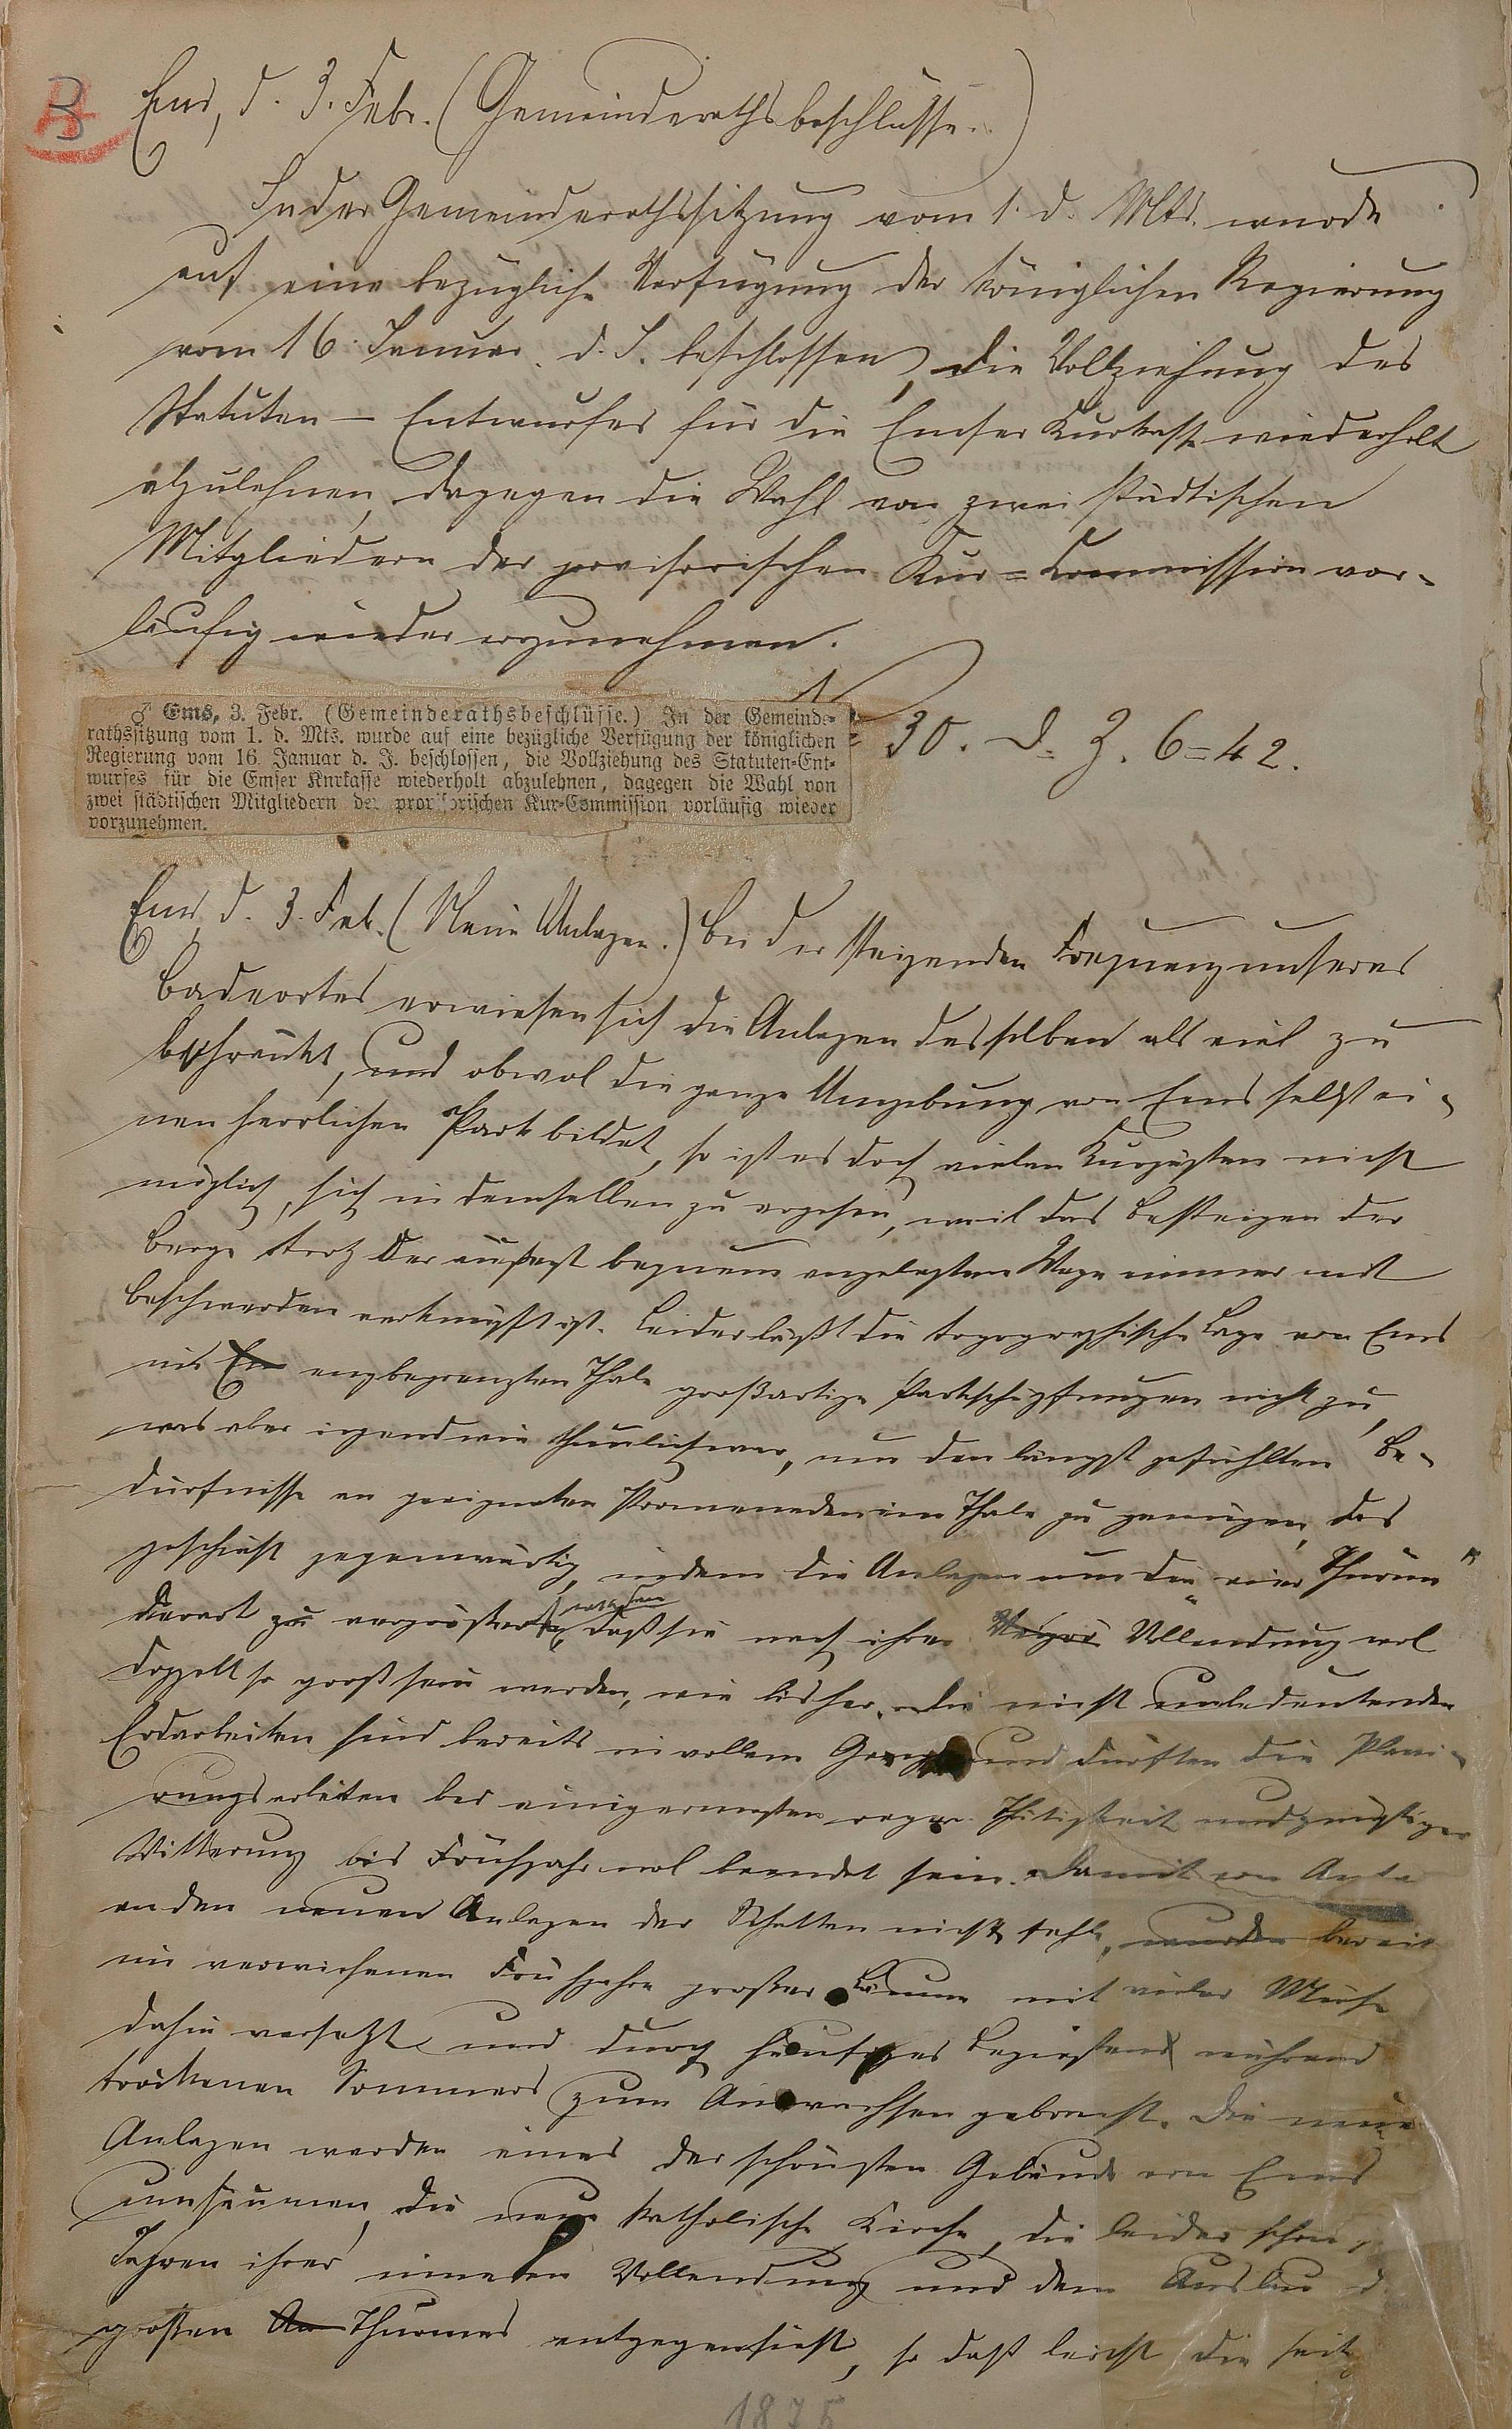 B
Ems, d. 3. Febr. (Gemeinderathsbeschlüsse.)
In der Gemeinderathssitzung vom 1. d. Mts. wurde
auf eine bezügliche Verfügung der königlichen Regierung
vom 16. Januar d. J. beschlossen, die Vollziehung des
Statuten-Entwurfes für die Emser Kurkasse wiederholt
abzulehnen, dagegen die Wahl von zwei städtischen
Mitgliedern der provisorischen Kur=Commission vor-
läufig wieder vorzunehmen.
♂ Ems, 3. Febr. (Gemeinderathsbeschlüsse.) In der Gemeinde-
rathssitzung vom 1. d. Mts. wurde auf eine bezügliche Verfügung der königlichen
Regierung vom 16. Januar d. J. beschlossen, die Vollziehung des Statuten-Ent-
wurfes für die Emser Knrkasse wiederholt abzulehnen, dagegen die Wahl von
zwei städtischen Mitgliedern der provisorischen Kur-Commission vorläufig wieder
vorzunehmen.
30. d. Z. 6=42.
Ems, d. 3. Feb. (Neue Anlagen.) Bei der steigenden Frequenz unseres
Badeortes erwiesen sich die Anlagen desselben als viel zu
beschränkt, und obwol die ganze Umgebung von Ems selbst ei-
nen herrlichen Park bildet, so ist es doch vielen Kurgästen nicht
möglich, sich in demselben zu ergehen, weil das Besteigen der
Berge trotz der äußerst bequem angelegten Wege immer mit
Beschwerden verknüpft ist. Leider läßt die topographische Lage von Ems
im En engbegrenzten Thale großartige Parkschöpfungen nicht zu,
was aber irgendwie thunlich war, um den längst gefühlten Be-
dürfnisse an geeigneten Promenaden im Thale zu genügen, das
geschieht gegenwärtig, indem die Anlagen um die "vier Thürme"
derart zu vergrößert werden, daß sie nach ihrer Vollendung wol
doppelt so groß sein werden, wie bisher. Die nicht unbedeutenden
Erdarbeiten sind bereits in vollem Gange und dürften die Plani-
rungsarbeiten bei einigermaßen reger Thätigkeit und günstiger
Witterung bis Frühjahr wol beendet sein. Damit
an den neuen Anlagen der Schatten nicht fehle, wurden bereits
im verwichenen Frühjahre großer Bäume mit vieler Mühe
dahin versetzt und durch häufiges Begießen während
trockenen Sommers zum Anwachsen gebracht. Die neue
Anlagen werden eines der schönsten Gebäude von Ems
umsäumen, die neue katholische Kirche, die leider schon
Jahren ihrer inneren Vollendung und dem Ausbau d
großen Thurmes entgegensieht, so daß leicht die seit
1875